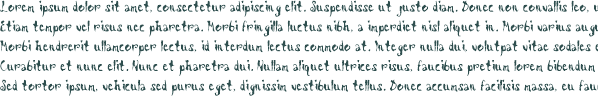 Lorem ipsum dolor sit amet, consectetur adipiscing elit. Suspendisse ut justo diam. Donec non convallis leo, u
Etiam tempor vel risus nec pharetra. Morbi fringilla luctus nibh, a imperdiet nisl aliquet in. Morbi varius augu
Morbi hendrerit ullamcorper lectus, id interdum lectus commodo at. Integer nulla dui, volutpat vitae sodales e
Curabitur et nunc elit. Nunc et pharetra dui. Nullam aliquet ultrices risus, faucibus pretium lorem bibendum
Sed tortor ipsum, vehicula sed purus eget, dignissim vestibulum tellus. Donec accumsan facilisis massa, eu fau